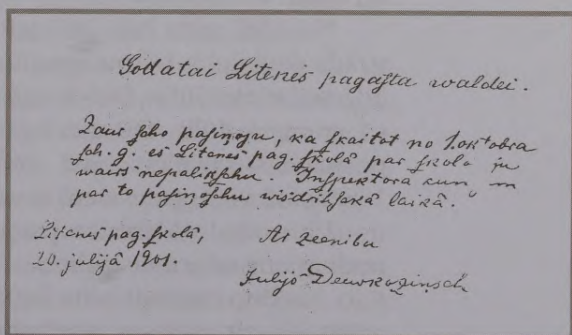 Godatai Litenes pagasta waldei.
Zaur scho pasiņoju, ka skaitot no 1. oktobra
sch. g. es Litenes pag. skolā par skolo ju
wairs nepalikschu. Inspektora kun
par to pasiņoschu wisdrihsakā laikā.
Litenes pag. skolā,
20. julijā 1901.
Ar zeenibu
Julijs